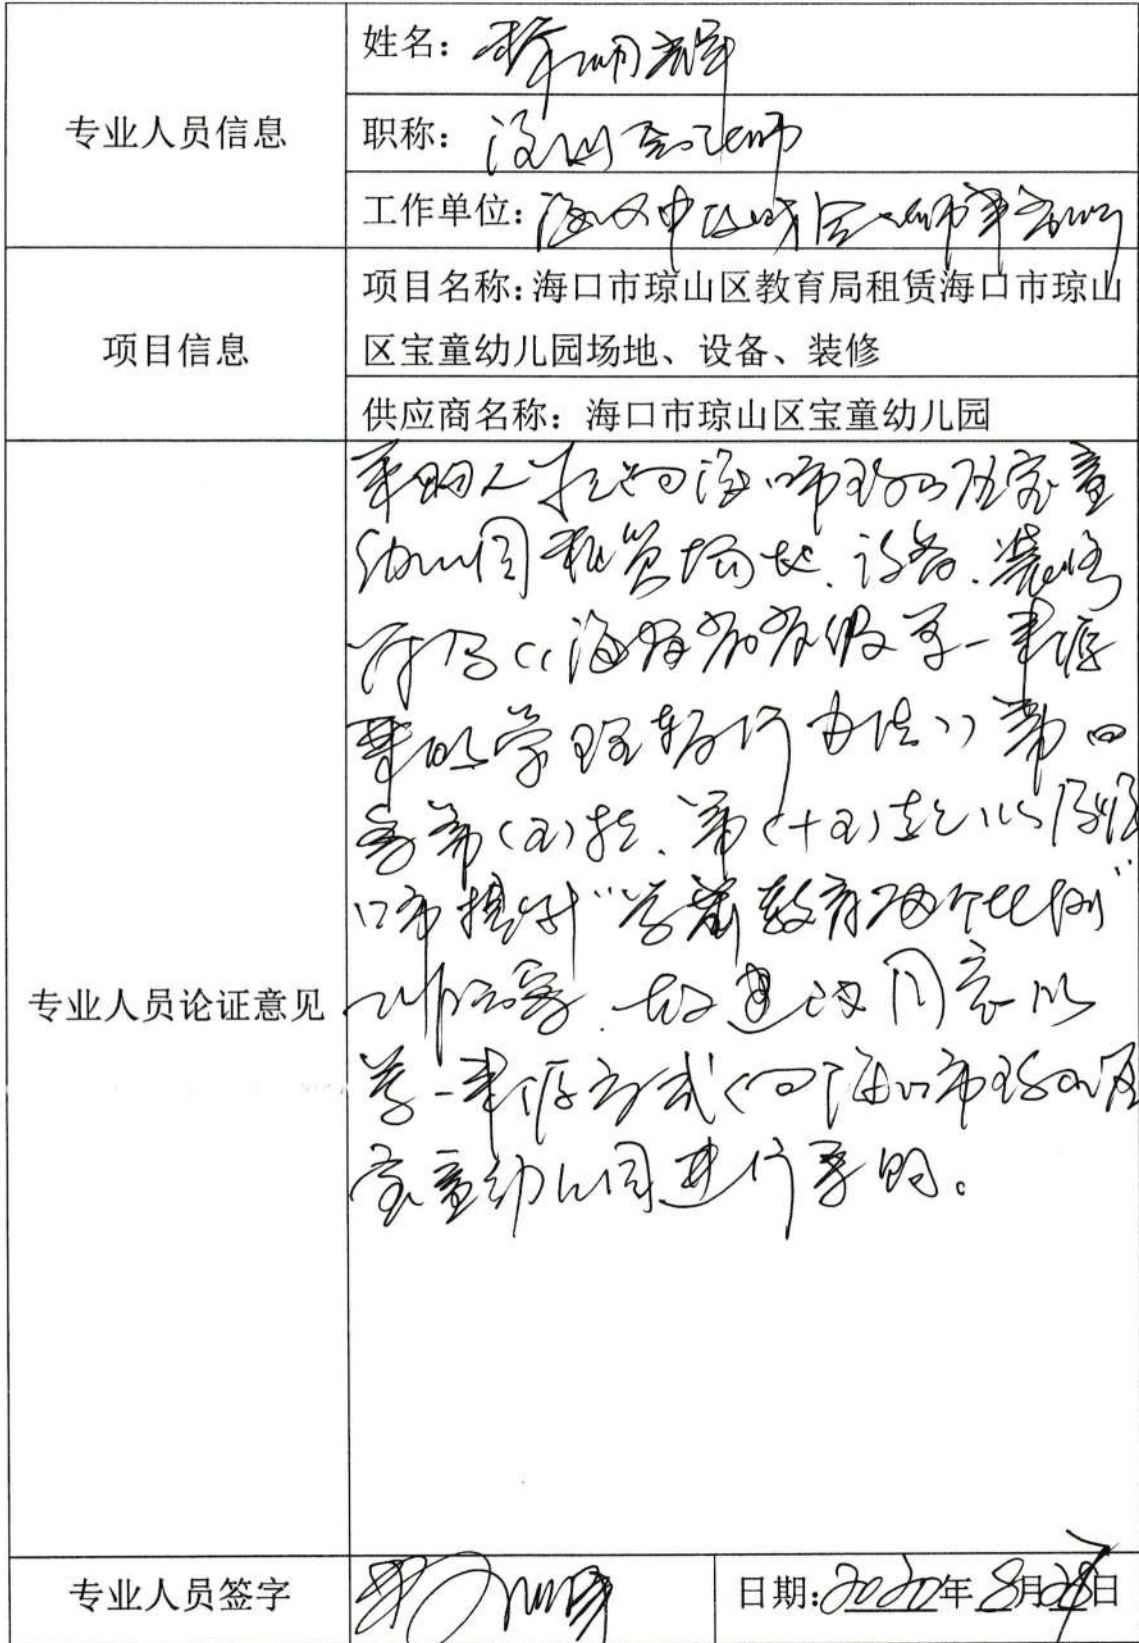 专业人员信息
姓名:
职称: 注册会计师
工作单位: 会计师事务所
项目信息
项目名称:海口市琼山区教育局租赁海口市琼山
区宝童幼儿园场地、设备、装修
供应商名称: 海口市琼山区宝童幼儿园
专业人员论证意见
采购人拟向海口市琼山区宝童
幼儿园租赁场地、设备、装修
符合《海南省省级单一来源
采购管理暂行办法》第四
条第(五)款、第(十五)
口市提升“学前教育两个比例”
故建议同意以
单一来源方式向海口市琼山区
宝童幼儿园进行采购。
专业人员签字
日期:2020年8月28日